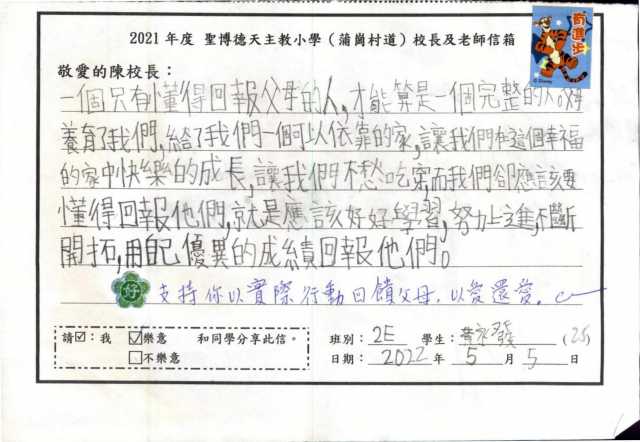 2021 年度 聖博德天主教小學（蒲崗村道）校長及老師信箱
有進步
© Disney
敬愛的陳校長：
一個只有懂得回報父母的人,才能算是一個完整的人。父母
養育了我們,給了我們一個可以依靠的家,讓我們在這個幸福
的家中快樂的成長,讓我們不愁吃穿而我們卻應該要
懂得回報他們,就是應該好好學習,努力上進,不斷
開拓,用自己優異的成績回報他們。
好 支持你以實際行動回饋父母，以愛還愛。
請☑：我 ☑樂意 和同學分享此信。 班別： 2E 學生： 黃永發 (25)
□不樂意 日期： 2022 年 5 月 5 日